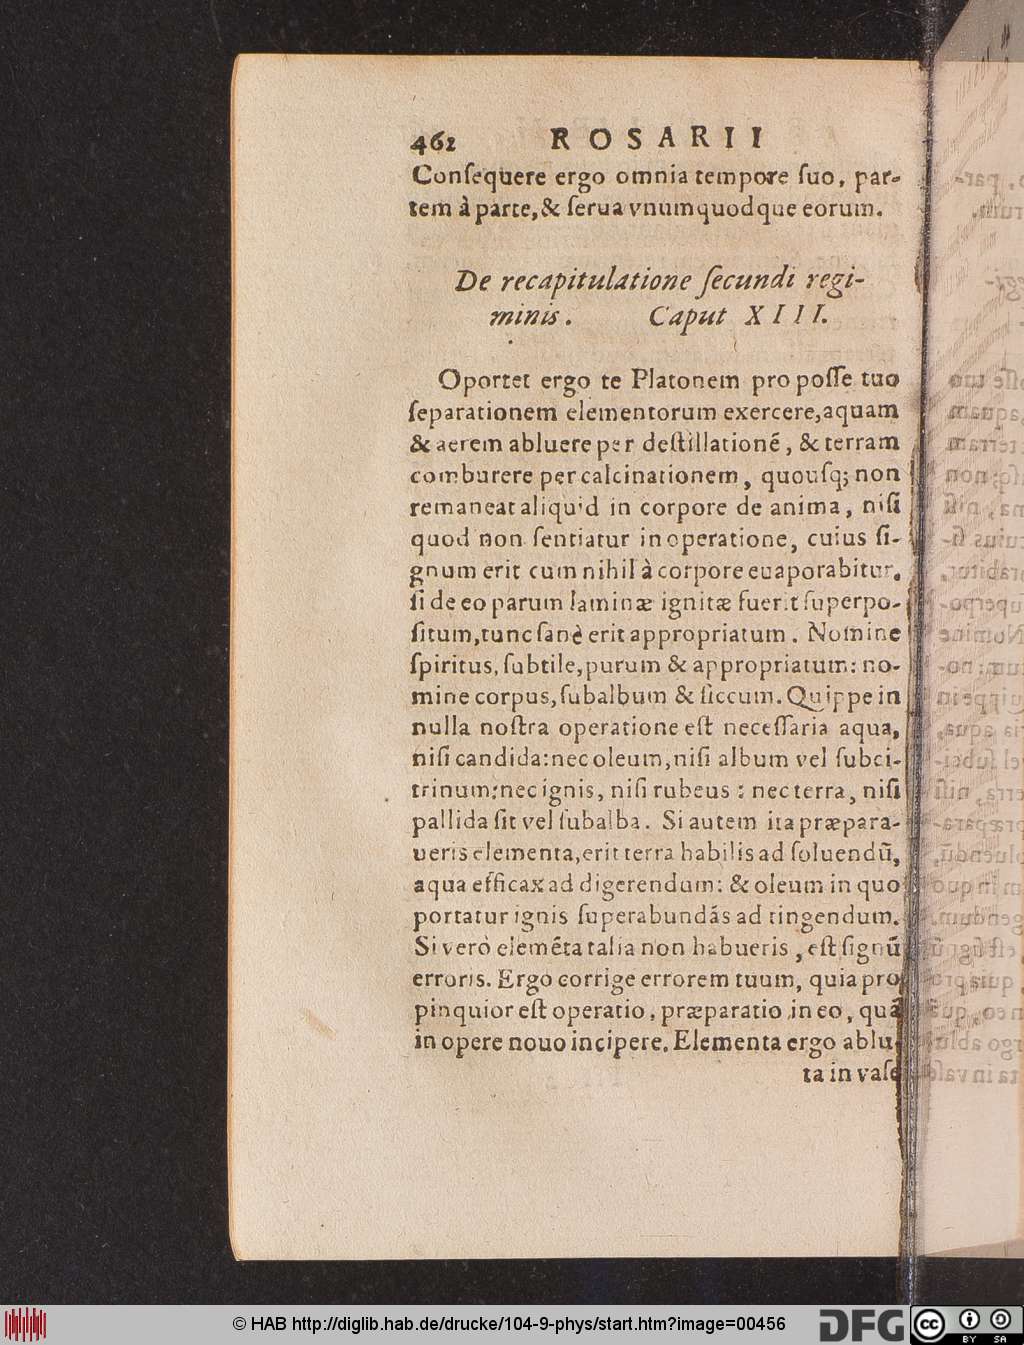 462 ROSARII
Conſequere ergo omnia tempore ſuo, par-
tem à parte, & ſerua vnumquodque eorum.
De recapitulatione ſecundi regi-
minis. Caput XIII.
Oportet ergo te Platonem pro poſſe tuo
ſeparationem elementorum exercere, aquam
& aerem abluere per deſtillationẽ, & terram
comburere per calcinationem, quouſq; non
remaneat aliquid in corpore de anima, niſi
quod non ſentiatur in operatione, cuius ſi-
gnum erit cum nihil à corpore euaporabitur,
ſi de eo parum laminæ ignitæ fuerit ſuperpo-
ſitum, tunc ſanè erit appropriatum. Nomine
ſpiritus, ſubtile, purum & appropriatum: no-
mine corpus, ſubalbum & ſiccum. Quippe in
nulla noſtra operatione eſt neceſſaria aqua,
niſi candida: nec oleum, niſi album vel ſubci-
trinum: nec ignis, niſi rubeus: nec terra, niſi
pallida ſit vel ſubalba. Si autem ita præpara-
ueris elementa, erit terra habilis ad ſoluendũ,
aqua efficax ad digerendum: & oleum in quo
portatur ignis ſuperabundãs ad tingendum.
Si verò elemẽta talia non habueris, eſt ſignũ
erroris. Ergo corrige errorem tuum, quia pro
pinquior eſt operatio, præparatio in eo, quã
in opere nouo incipere. Elementa ergo ablu-
ta in vaſe
© HAB http://diglib.hab.de/drucke/104-9-phys/start.htm?image=00456
DFG
cc BY SA